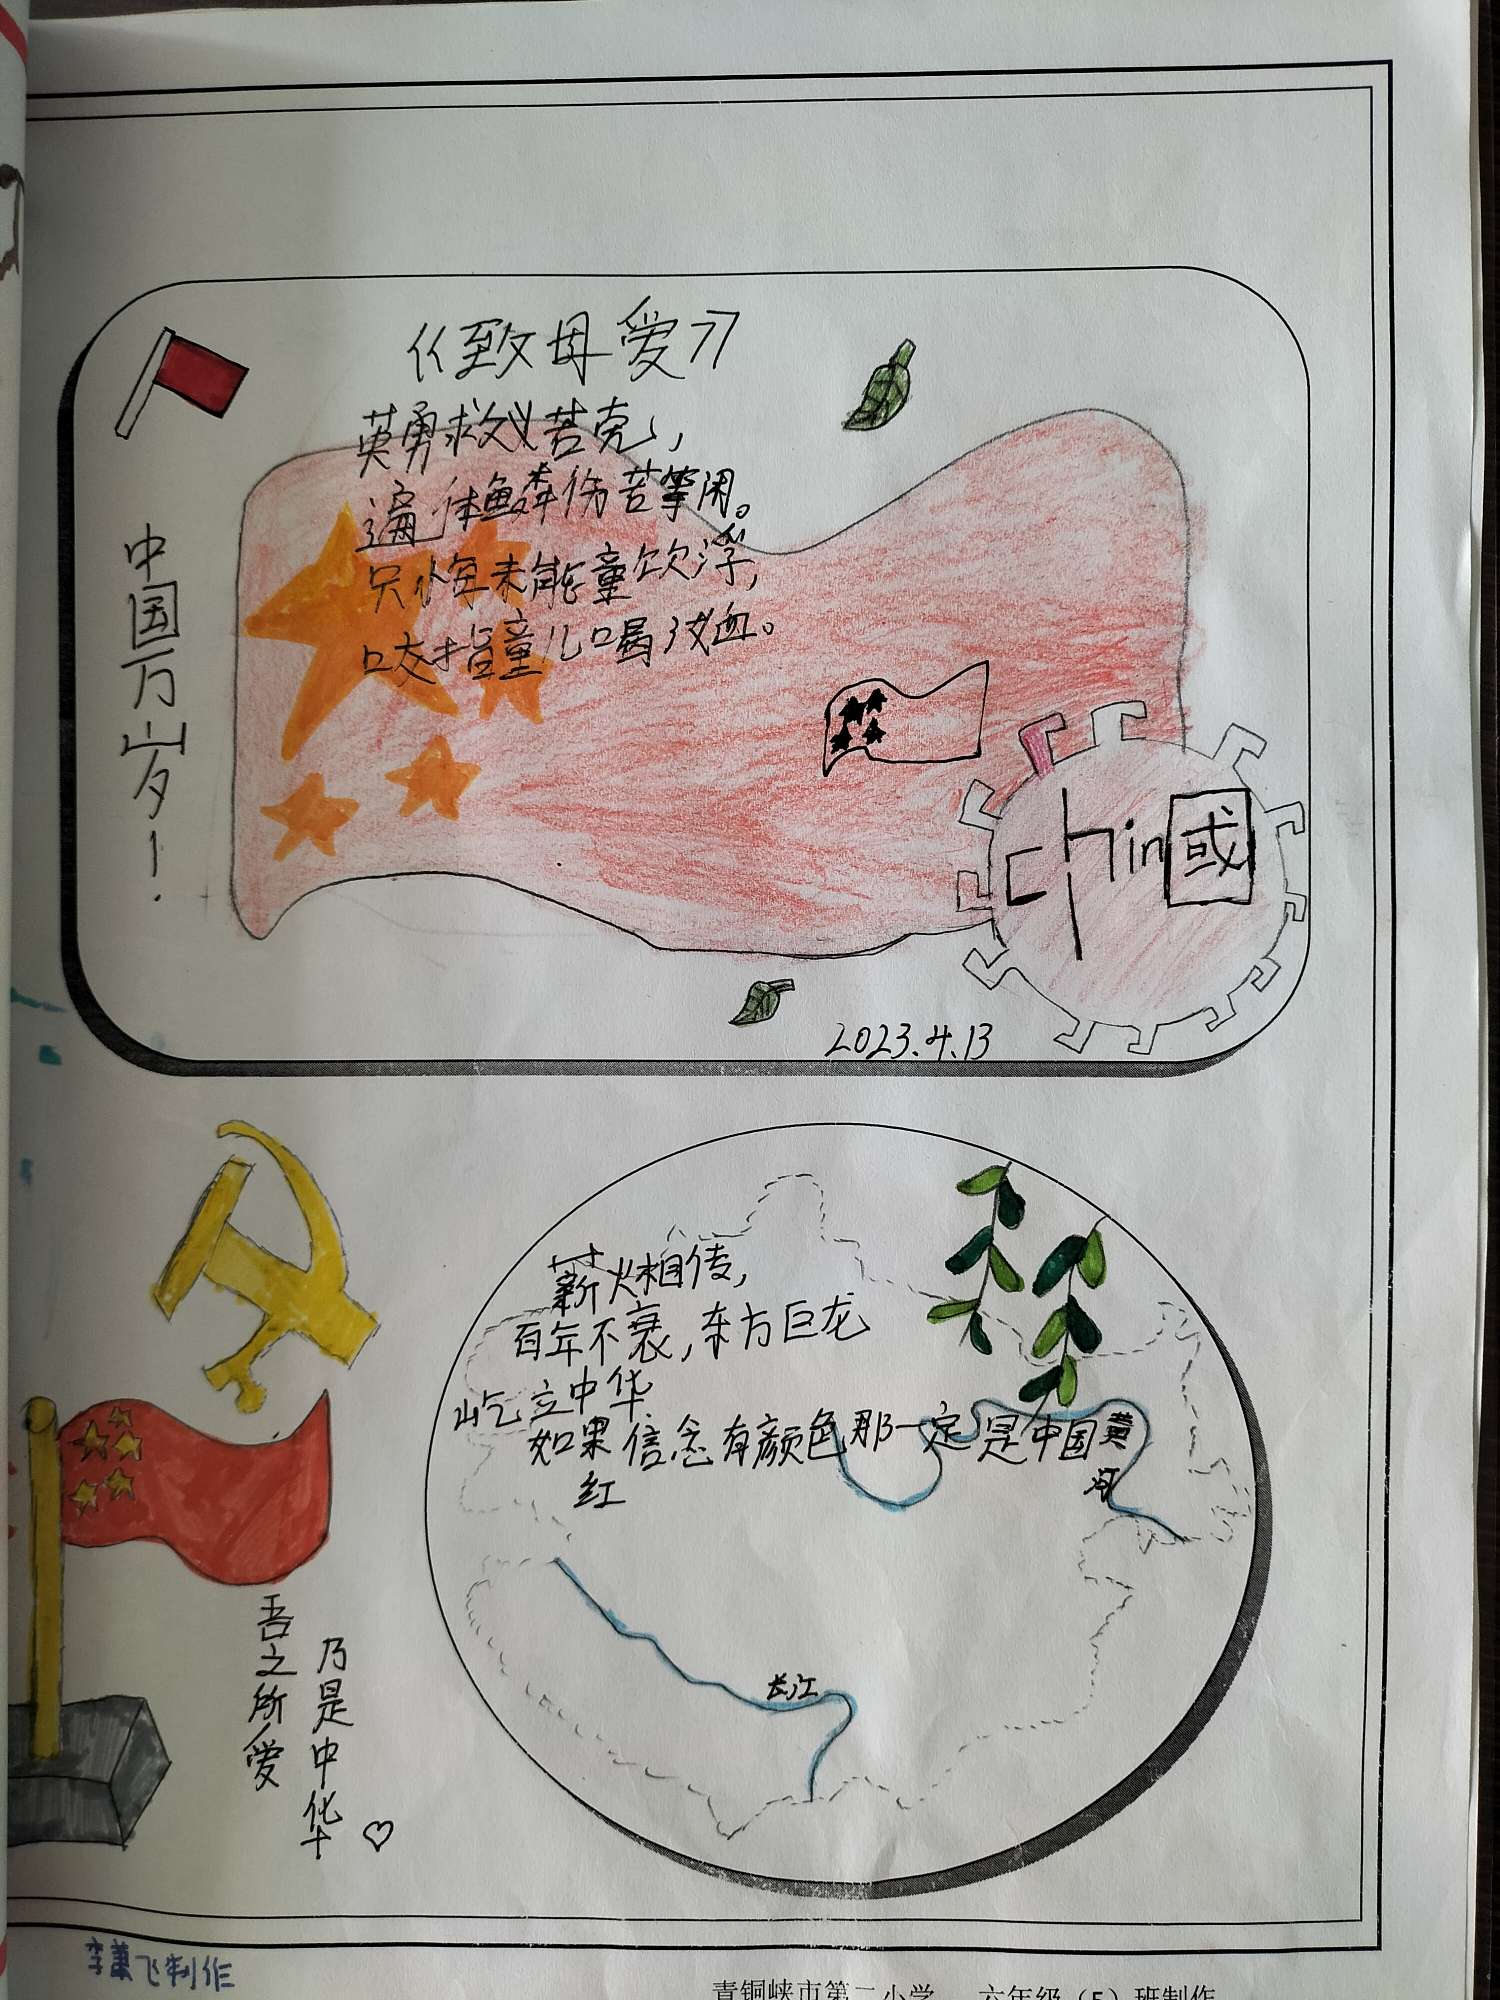 《致母爱》
英勇救义苦壳,
遍体鳞伤苦挛闲。
只悔未能童饮浮,
咬指童儿喝成血。
中国万岁!
Chin国
2023.4.13
薪火相传,
百年不衰,东方巨龙
屹立中华
如果信念有颜色那一定是中国
红
黄河
长江
吾之所爱
乃是中华♡
李萧飞制作
青铜峡市第二小学 六年级(5)班制作